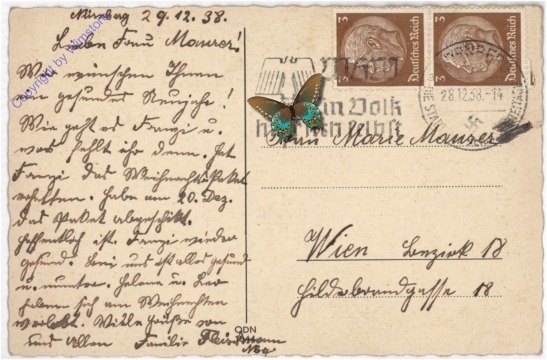 Nürnberg 29.12.38.
Lieben Frau Maurer!
Wir wünschen Ihnen
ein gesundes Neujahr!
Wie geht es Franzi u.
was fehlt ihr denn. Hat
Franzi das Weihnachts Paket
erhalten. Habe am 20. Dez.
das Paket abgeschikt.
Hoffentlich ist Franzi wieder
gesund. Bei uns ist alles gesund
u. munter. Helene u.
haben sich am Weihnachten
verlobt. Viele Grüße von
uns Allen Familie
Copyright by philastore
3 Deutsches Reich
3 Deutsches Reich
Ein Volk
hilft sich selbst
28.12.38.-14
Frau Marie Maurer
Wien Bezirk 18
Hildebrandgasse 18
QDN